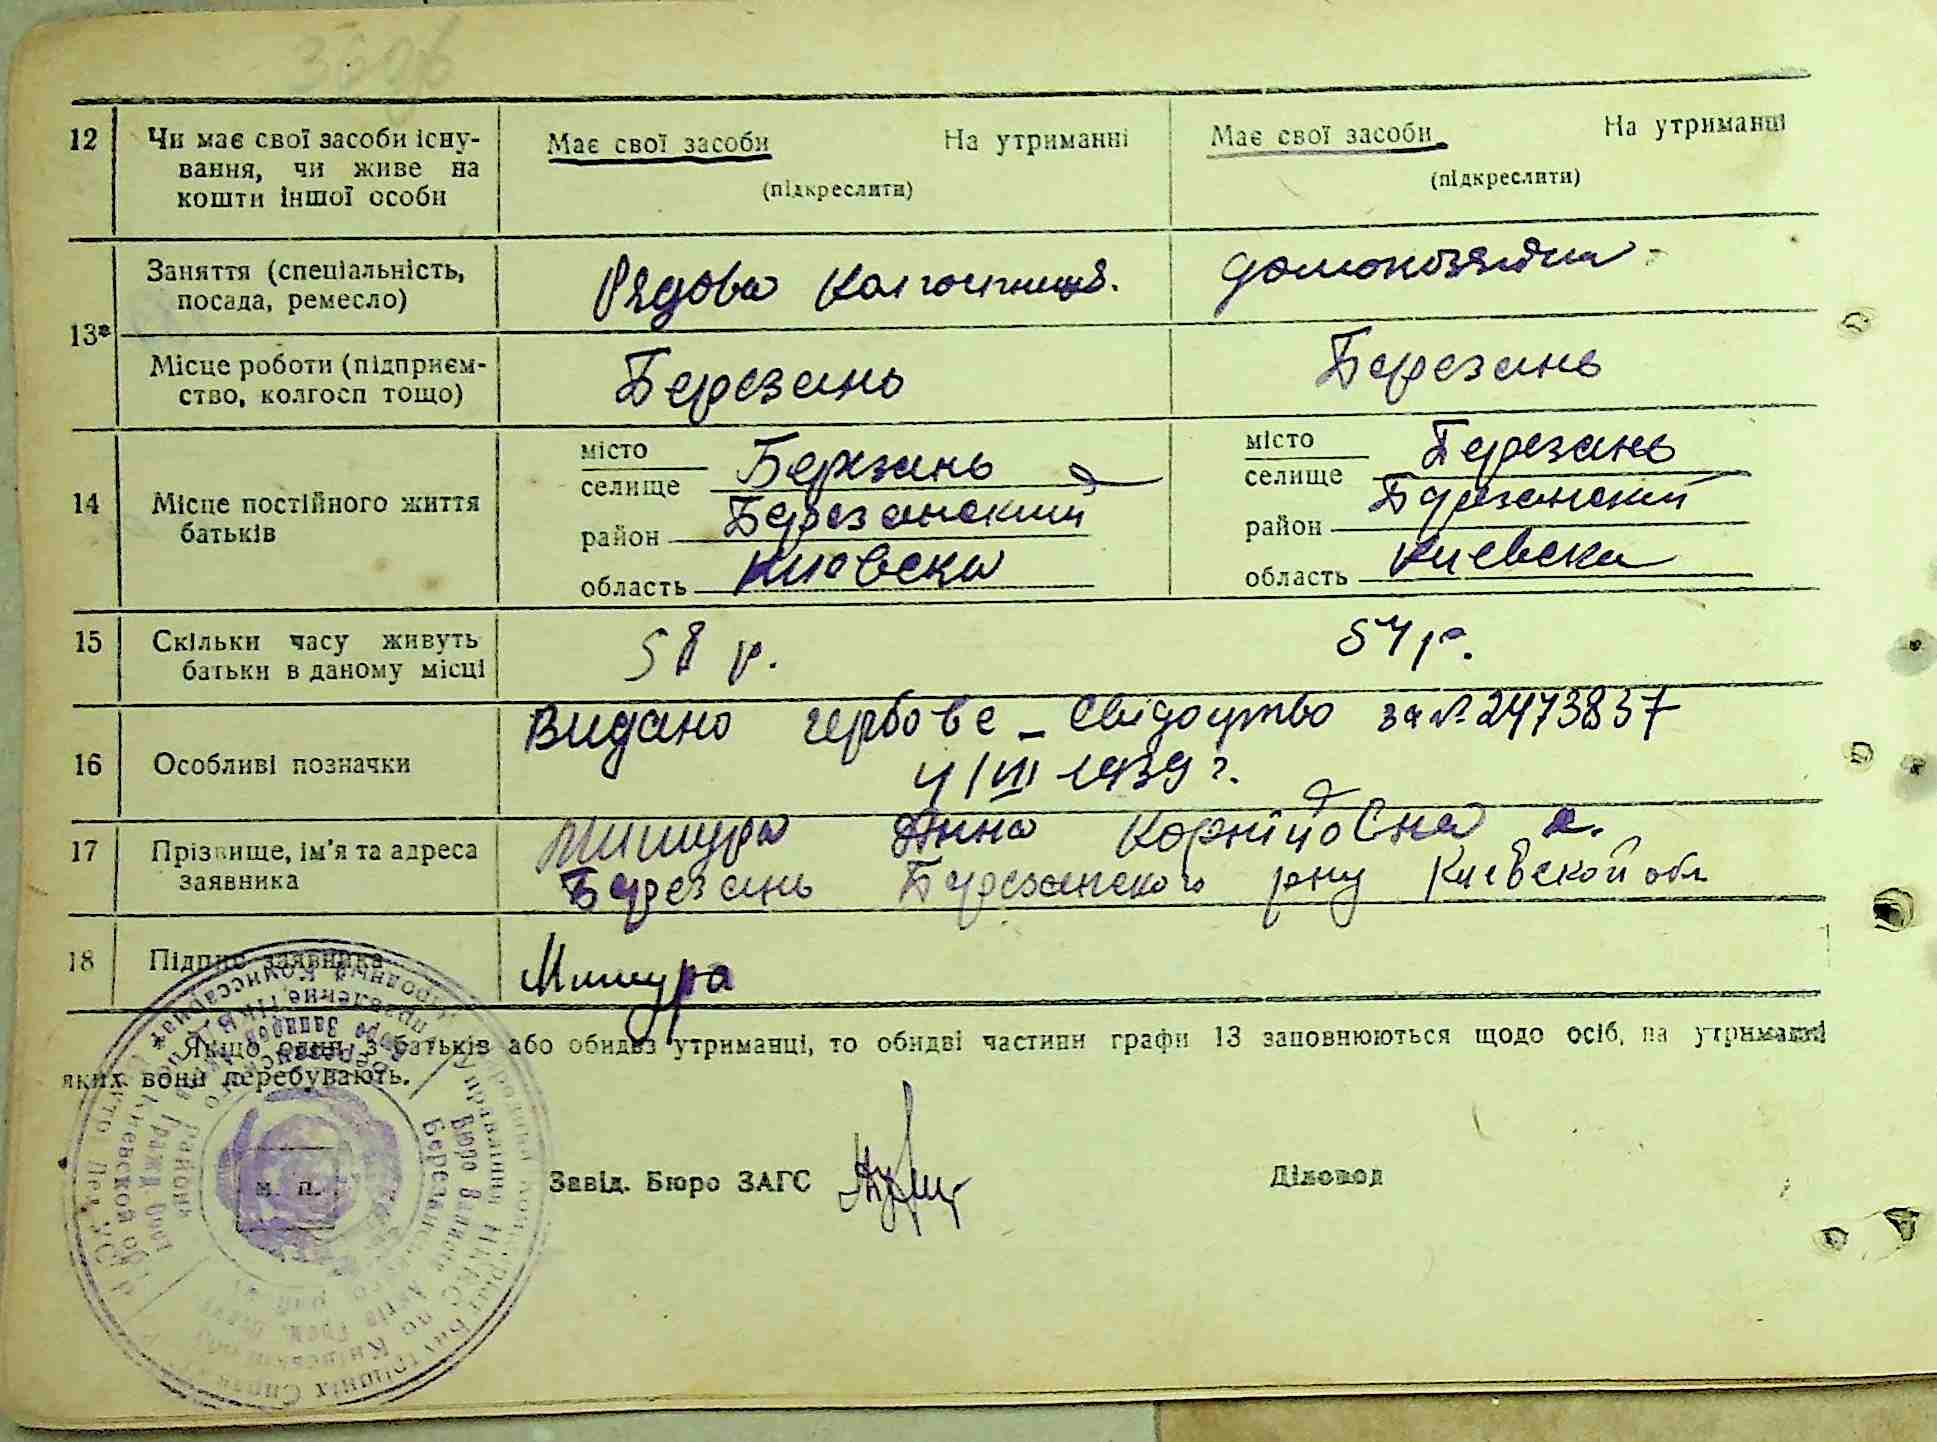 12 Чи має свої засоби існу- Має свої засоби На утриманні Має свої засоби На утриманні
вання, чи живе на (підкреслити) (підкреслити)
кошти іншої особи
13* Заняття (спеціальність, Рядова Колгоспниця. домохозяйка
посада, ремесло)
Місце роботи (підприєм- Березань Березань
ство, колгосп тощо)
14 Місце постійного життя
батьків
місто
селище Березань
район Березанский
область Киевска
місто
селище Березань
район Березанский
область Киевска
15 Скільки часу живуть 58 р. 54 р.
батьки в даному місці
16 Особливі позначки Видано гербове - Свідоцтво за № 2473837
4/VIII 1939 г.
17 Прізвище, ім'я та адреса Мишура Анна Корніівовна
заявника Березань Березанского рну Киевской обл
18 Підпис заявника Мишура
Якщо один з батьків або обидва утриманці, то обидві частини графи 13 заповнюються щодо осіб, на утриманні
яких вони перебувають.
м. п. Завід. Бюро ЗАГС Діловод